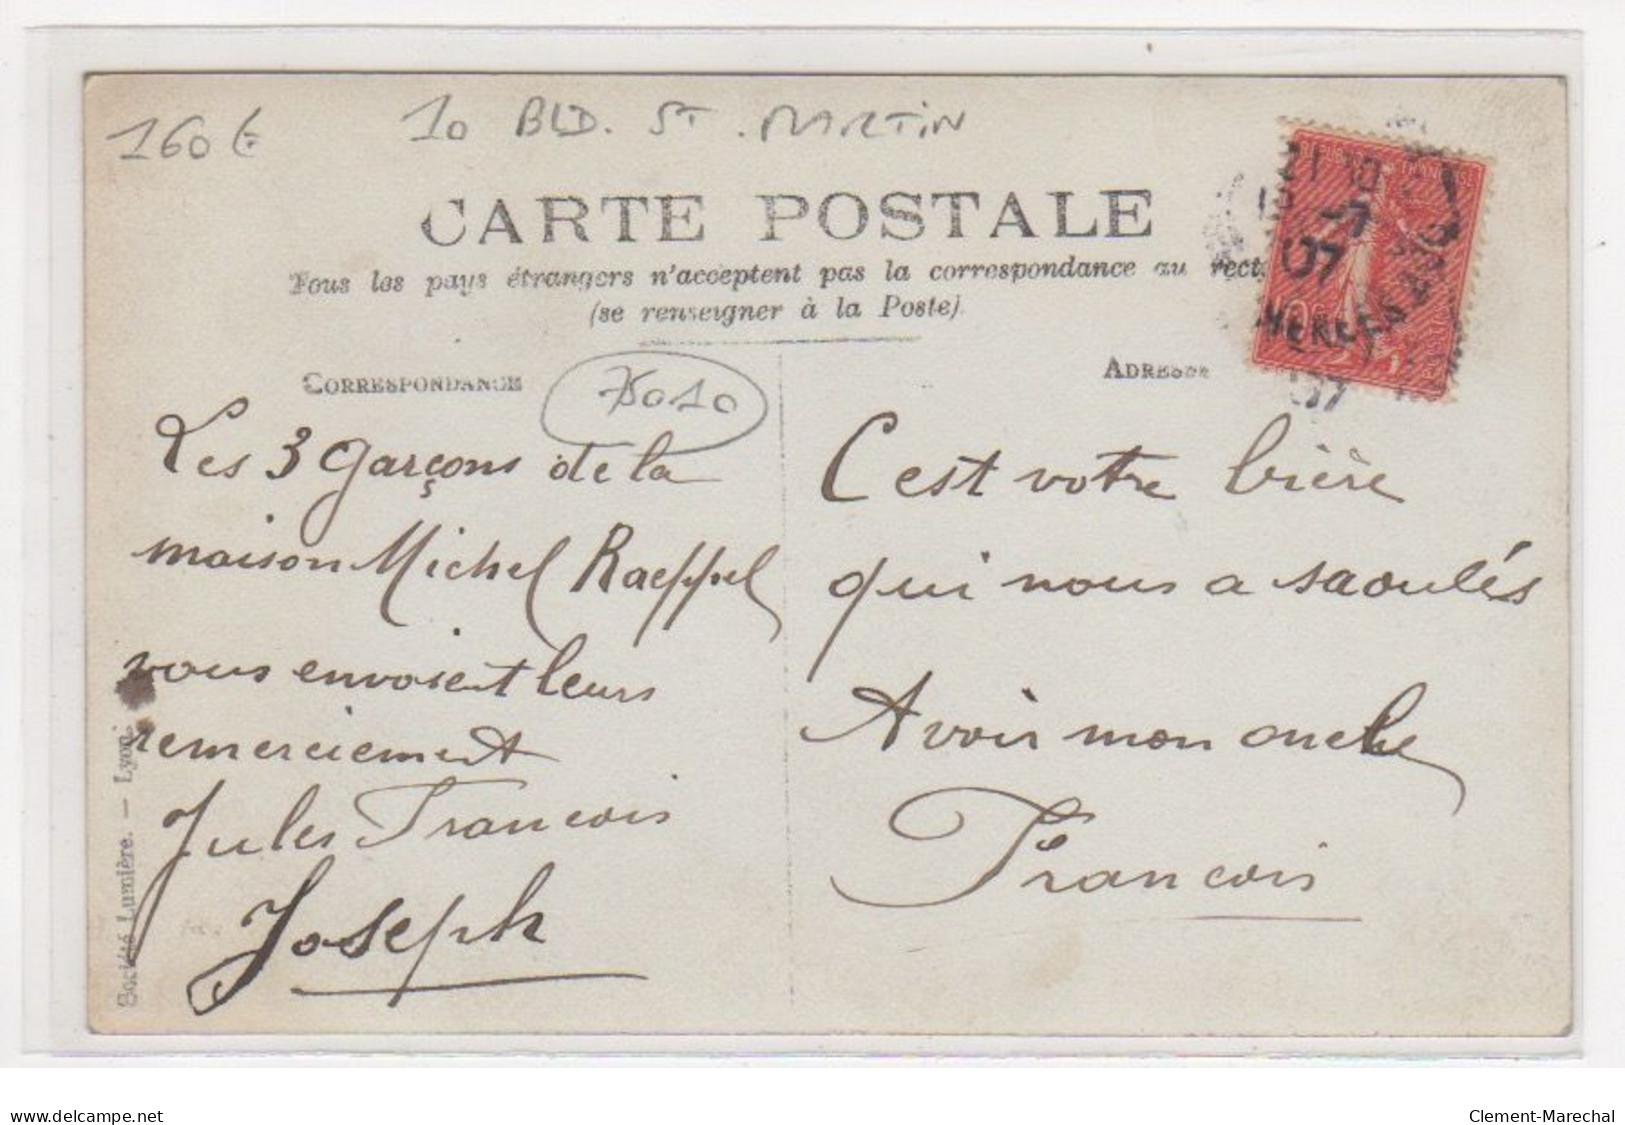 160 €
10 BLD. ST. MARTIN
CARTE POSTALE
Tous les pays étrangers n'acceptent pas la correspondance au rect
(se renseigner à la Poste)
CORRESPONDANCE
75010
ADRESSE
21 10
-7
07
07
Les 3 garçons de la
maison Michel Raeppel
vous envoient leurs
remerciement
Jules Francois
Joseph
C'est votre bière
qui nous a saoulés
Avoir mon oncle
Francois
Société Lumière. — Lyon.
www.delcampe.net
Clement-Marechal